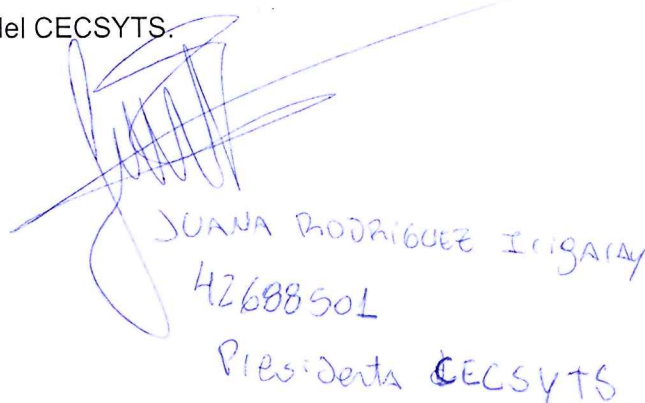 del CECSYTS.
JUANA RODRIGUEZ Irigaray
42688501
Presidenta CECSYTS